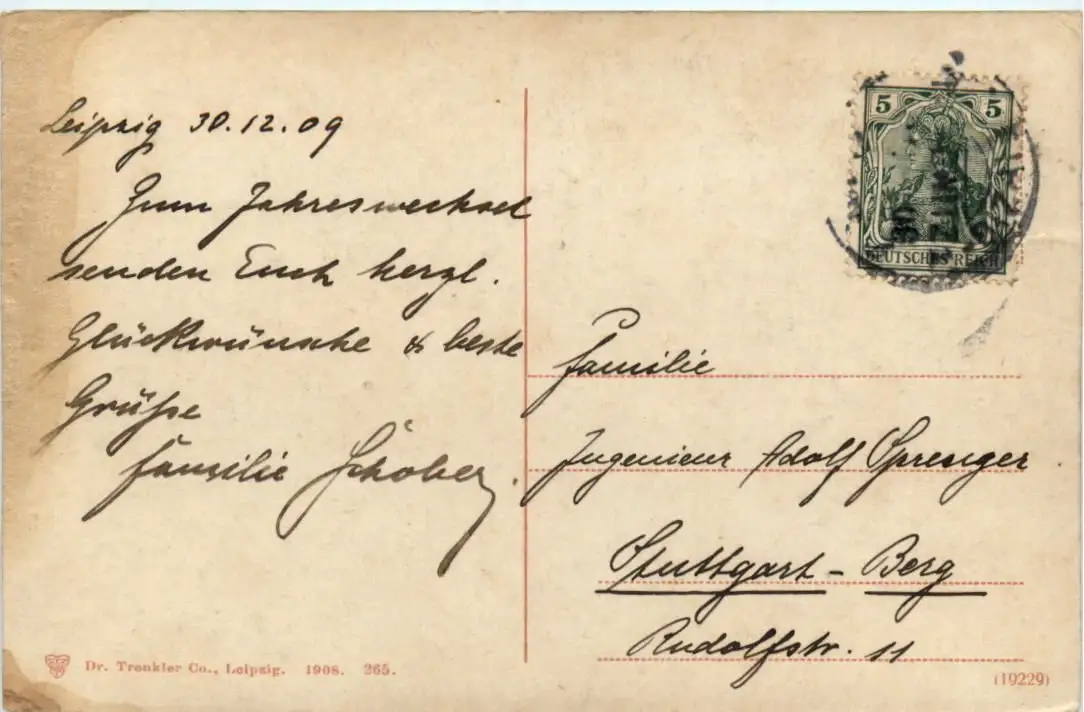 Leipzig 30.12.09
Zum Jahreswechsel
senden Euch herzl.
Glückwünsche & beste
Grüße
Familie Schober.
5 5
DEUTSCHES REICH
30
Familie
Ingenieur Adolf Sprenger
Stuttgart - Berg
Rudolfstr. 11
Dr. Trenkler Co., Leipzig. 1908. 265.
(19229)